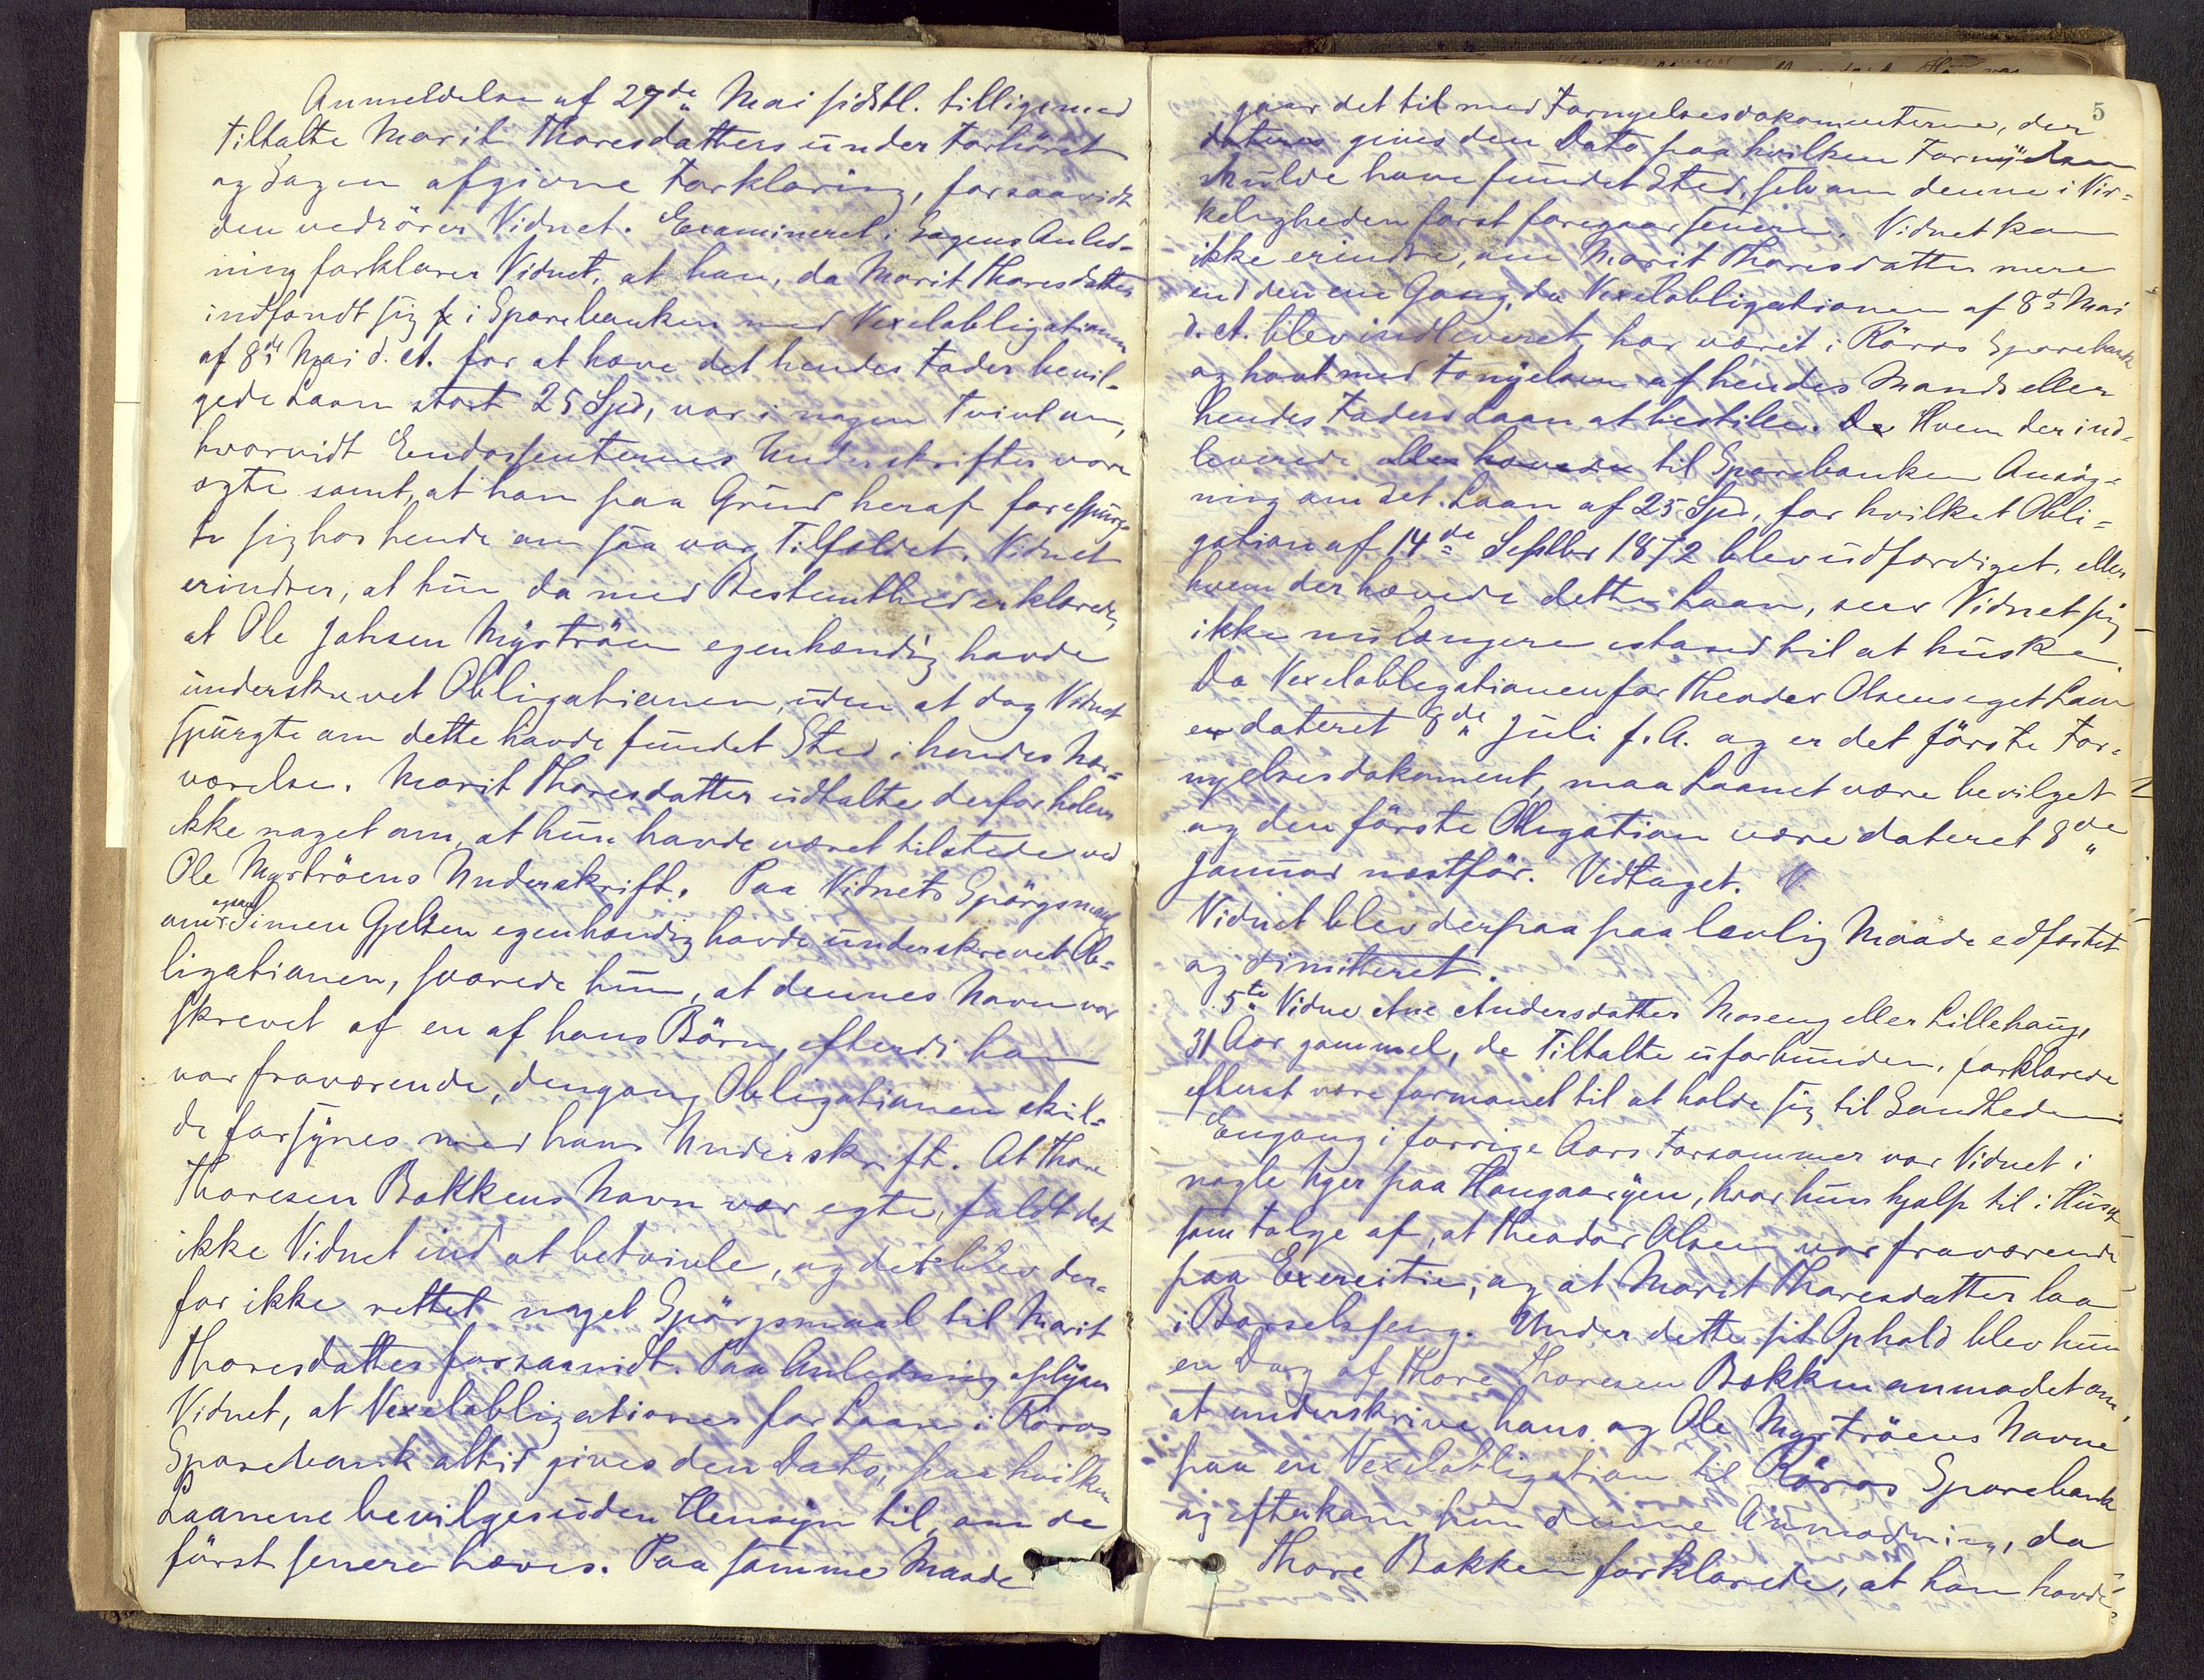 Anmeldelse af 27de Mai sidstl. tilligemed
Tiltalte Marit Thoresdatters under Forhöret
og Sagen afgivne Forklaring, forsaavidt
den vedrörer Vidnet. Examineret i Sagens Anled-
ning forklarer Vidnet, at han, da Marit Thoresdatter
indfandt sig i Sparebanken med Vexelobligationen
af 8de Mai d. A. for at hæve det hendes Fader bevil-
gede Laan stort 25 Spd, var i nogen Tvivl om,
hvorvidt Endossenternes Underskrifter vare
ægte samt, at han paa Grund heraf forespurg-
te sig hos hende om saa var Tilfældet. Vidnet
erindrer, at hun da med Bestemthed erklærede,
at Ole Johsen Myrtröen egenhændig havde
underskrevet Obligationen, uden at dog Vidnet
spurgte om dette havde fundet Sted i hendes Nær-
værelse. Marit Thoresdatter udtalte derfor heller
ikke noget om, at hun havde været tilstede ved
Ole Myrtröens Underskrift. Paa Vidnets Spörgsmaal
om ogsaa Simen Gjelten egenhændig havde underskrevet Ob-
ligationen, svarede hun, at dennes Navn var
skrevet af en af hans Börn, efterdi han
var fraværende, dengang Obligationen skul-
de forsynes med hans Underskrift. At Thore
Thoresen Bakkens Navn var egte, faldt det
ikke Vidnet ind at betvivle, og det blev der-
for ikke rettet noget Spörgsmaal til Marit
Thoresdatter forsaavidt. Paa Anledning oplyser
Vidnet, at Vexelobligationer for Laan i Röros
Sparebank altid gives den Dato, paa hvilken
Laanene bevilges uden Hensyn til, om de
först senere hæves. Paa samme Maade
5
gaar det til med Fornyelsesdokumenterne, der
dateres gives den Dato paa hvilken Fornyelsen
skulde have fundet Sted, selv om denne i Vir-
keligheden först foregaar senere. Vidnet kan
ikke erindre, om Marit Thoresdatter mere
end den ene Gang, da Vexelobligationen af 8de Mai
d. A. blev indleveret, har været i Röros Sparebank
og havt med Fonyelsen af hendes Mands eller
hendes Faders Laan at bestille. De Hvem der ind-
leverede eller hævede til Sparebanken Ansög-
ning om det Laan af 25 Spd, for hvilket Obli-
gation af 14de Septbr 1872 blev udfærdiget, eller
hvem der hævede dette Laan, seer Vidnet sig
ikke nu længere istand til at huske.
Da Vexelobligationen for Theodor Olsens eget Laan
er dateret 8de Juli f. A. og er det förste For-
nyelsesdokument, maa Laanet være bevilget
og den förste Obligation være dateret 8de
Januar næstför. Vidtaget.
Vidnet blev derpaa paa lovlig Maade edfæstet
og dimitteret.
5te Vidne Ane Andersdatter Moseng eller Lillehaug,
31 Aar gammel, de Tiltalte uforbunden, forklarede
efterat være formanet til at holde sig til Sandheden:
Engang i forrige Aars Forsommer var Vidnet i
nogle Uger paa Haugaaröen, hvor hun hjalp til i Huset
som Fölge af, at Theodor Olsen var fraværende
paa Exercitie, og at Marit Thoresdatter laa
i Barselseng. Under dette sit Ophold blev hun
en Dag af Thore Thoresen Bakken anmodet om,
at underskrive hans og Ole Myrtröens Navne
paa en Vexelobligation til Röros Sparebank
og efterkom hun denne Anmodning, da
Thore Bakken forklarede, at han havde